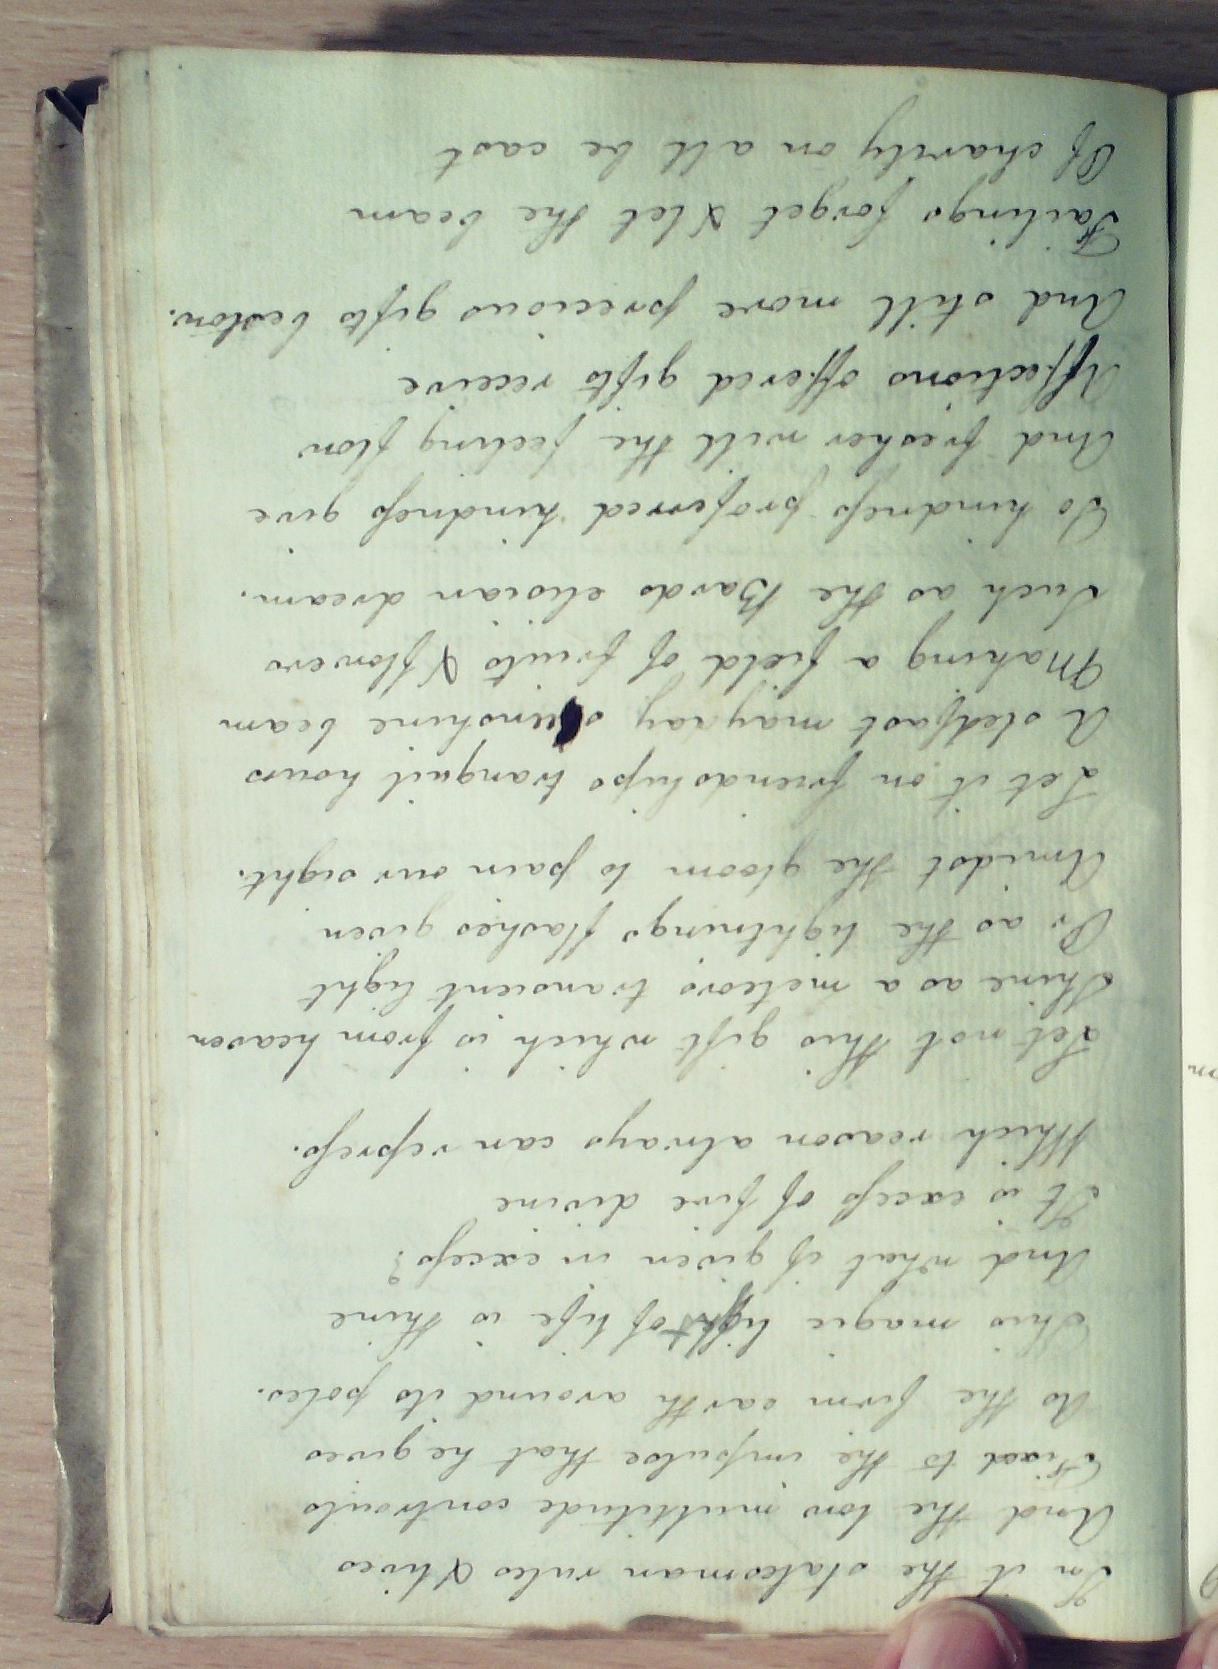 In it the statesman rules & lives
And the low multitude controuls
Fixed to the impulse that he gives
As the firm earth around its poles.
This magic light of life is thine
And what if given in excess?
It is excess of fire divine
Which reason always can repress.
Let not this gift which is from heaven
Shine as a meteors transient light
Or as the lightnings flashes given
Amidst the gloom to pain our sight.
Let it on friendships tranquil hours
A stedfast may ray sunshine beam
Making a field of fruits & flowers
Such as the Bards elisian dream.
To kindness profered kindness give
And fresher will the feeling flow
Affections offered gifts receive
And still more precious gifts bestow.
Failings forget & let the beam
Of charity on all be cast